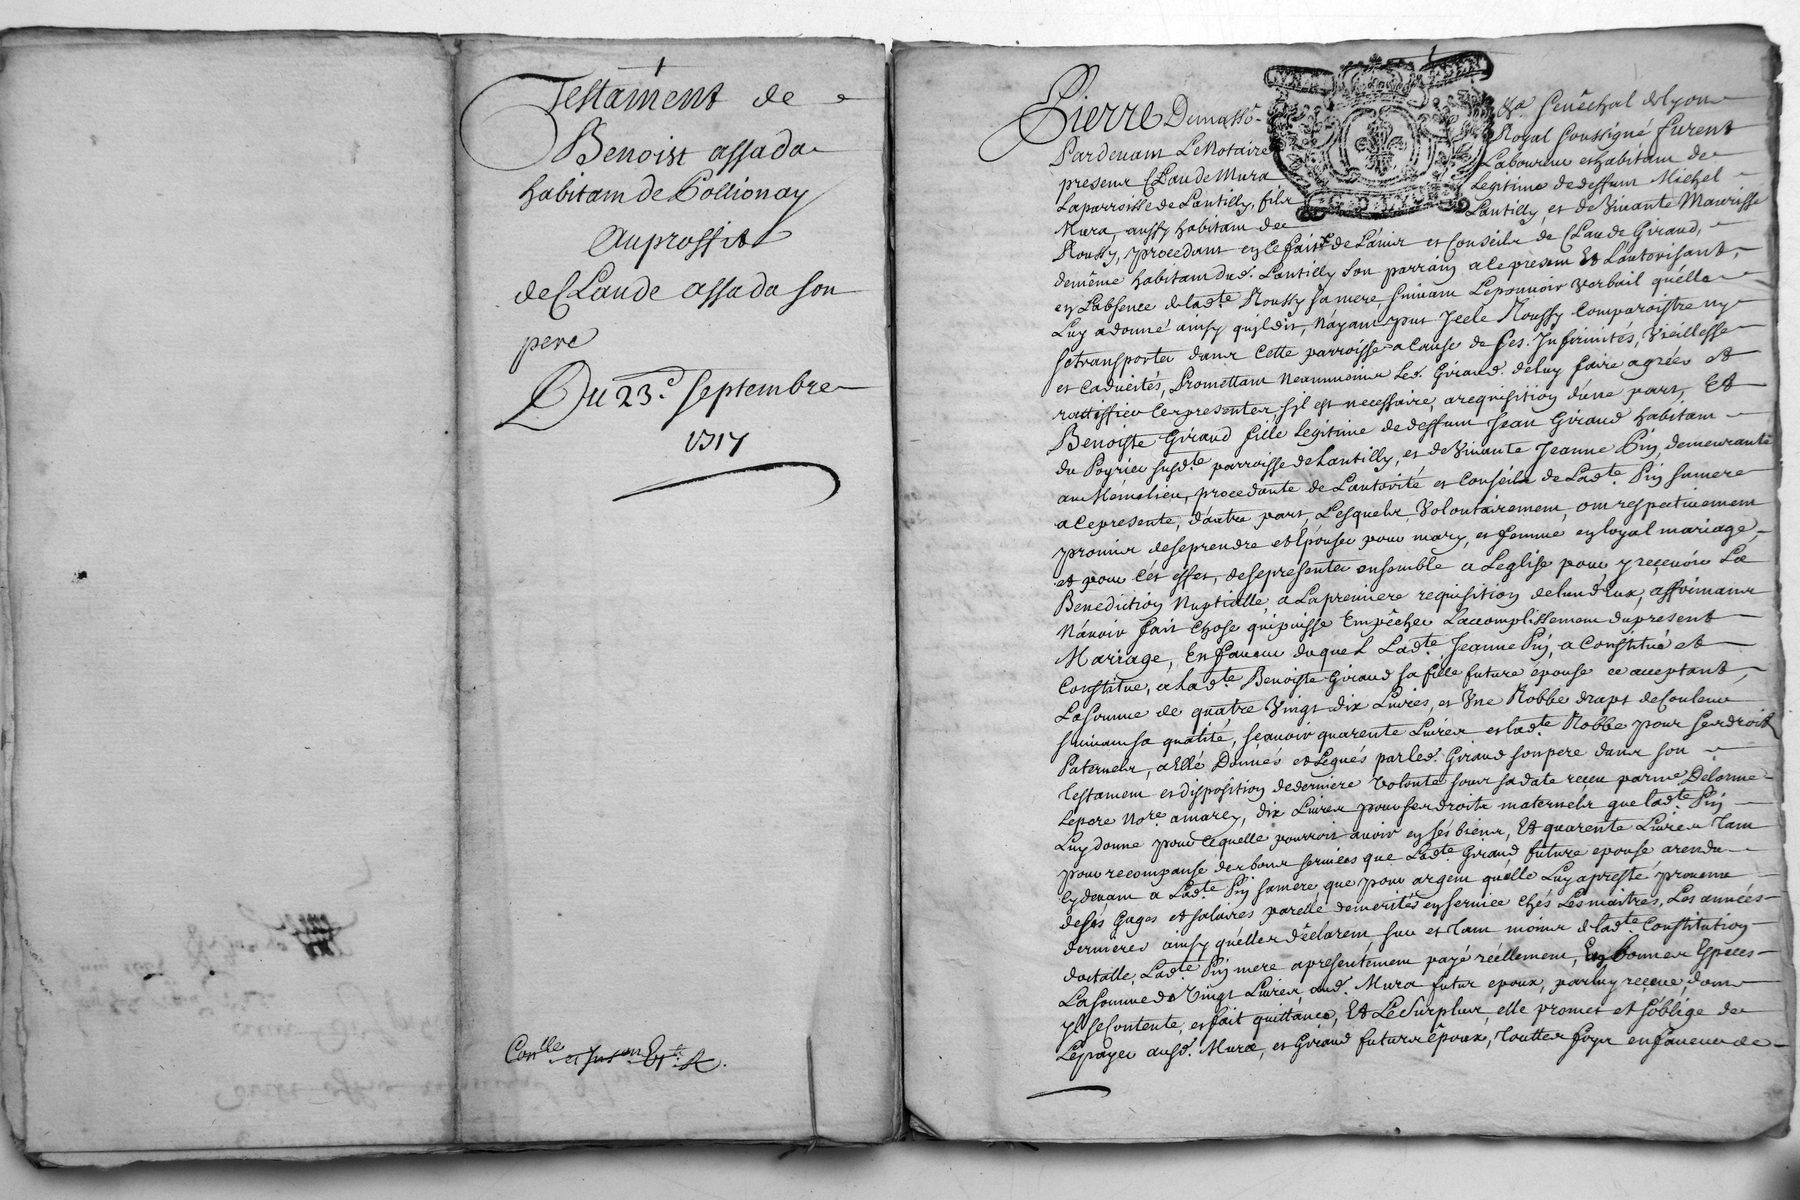 Testament de
Benoist assada
habitam de Pollionay
Auproffit
de Claude assada son
pere
Du 23.e septembre
1717
Con.lle et Jns.on
Pierre Demasso
& a Senechal de Lyon
Pardevam Le Notaire Royal soussigné furent
presens Claude Mura Laboureur et habitam de
Laparroisse de Lantilly, fils Legitime de deffunt Michel
Mura aussy habitam de Lantilly et de Vivante Maurisse
Roussy, procedant en ce fait de Lavis et Conseils de Claude Giraud,
demême habitam dud. Lantilly son parrain a ce present Et Lautorisant,
en Labsence de lad.te Roussy sa mere, suivam Lepouvoir verbail quelle
Luy a donné ainsy quil dit, Nayam pus Jcele Roussy Comparoistre ny
se transporter dans Cette parroisse a cause de ses Jnfirmités, Vieillesse
et Caducités, Promettam Neammoins Led. Giraud de luy faire agréer et
rattiffier Ces presentes, sil est necessaire, arequisition d'une part, Et
Benoiste Giraud fille Legitime de deffunt Jean Giraud habitam
du Poyrier susd.te parroisse de Lantilly, et de Vivante Jeanne Pin, demeurante
au Mémelieu, procedante de Lautorité et Conseils de Lad.te Pin samere
a ce presente, dautre part, Lesquels Volontairement, ont respectivement
promis de se prendre et épouser pour mary et femme en loyal mariage,
et pour Cét effet, de se presenter ensemble a Leglise pour y reçevoir La
Benediction Nuptialle a La premiere requisition de lun d'Eux, affirmans
Návoir fait Chose qui puisse Empêcher Laccomplissement du present
Mariage, En faveur duquel Lad.te Jeanne Pin, a Constitué et
Constitue, a Lad.te Benoiste Giraud sa fille future épouse ce acceptant,
La somme de quatre Vingt dix Livres, et Vne Robbe draps de Couleur
suivam sa qualité, sçavoir quarente Livres et lad.te Robbe pour ses droits
Paternels, a Elle Donnés et Legués par led. Giraud son pere dans son
Testament et disposition de derniere Volonté sous sa date reçeu par me Delorme
Lepere No.re amarey, dix Livres pour ses droits maternels que lad.te Pin
Luy donne pour ce quelle pourroit avoir en sés biens, Et quarente Livres Tam
pour recompanse des bons services que Lad.te Giraud future epouse a rendu
Cy devam a Lad.te Pin samere, que pour argem quelle Luy a presté provenu
de sés Gages et salaires par elle demerités en service Chés Les maitres, Les années
dernieres ainsy quelles déclarem sur et Tam moins de lad.te Constitution
dotalle, Lad.te Pin mere a presentement payé réellement, En bonnes Especes
La somme de Vingt Livres, aud. Mura futur epoux, par luy reçeue, dom
Jl se Contente, et fait quittance, Et Le surplus, elle promet et s'oblige de
Le payer ausd. Mura, et Giraud futurs Epoux, Touttes foyes en faveur de